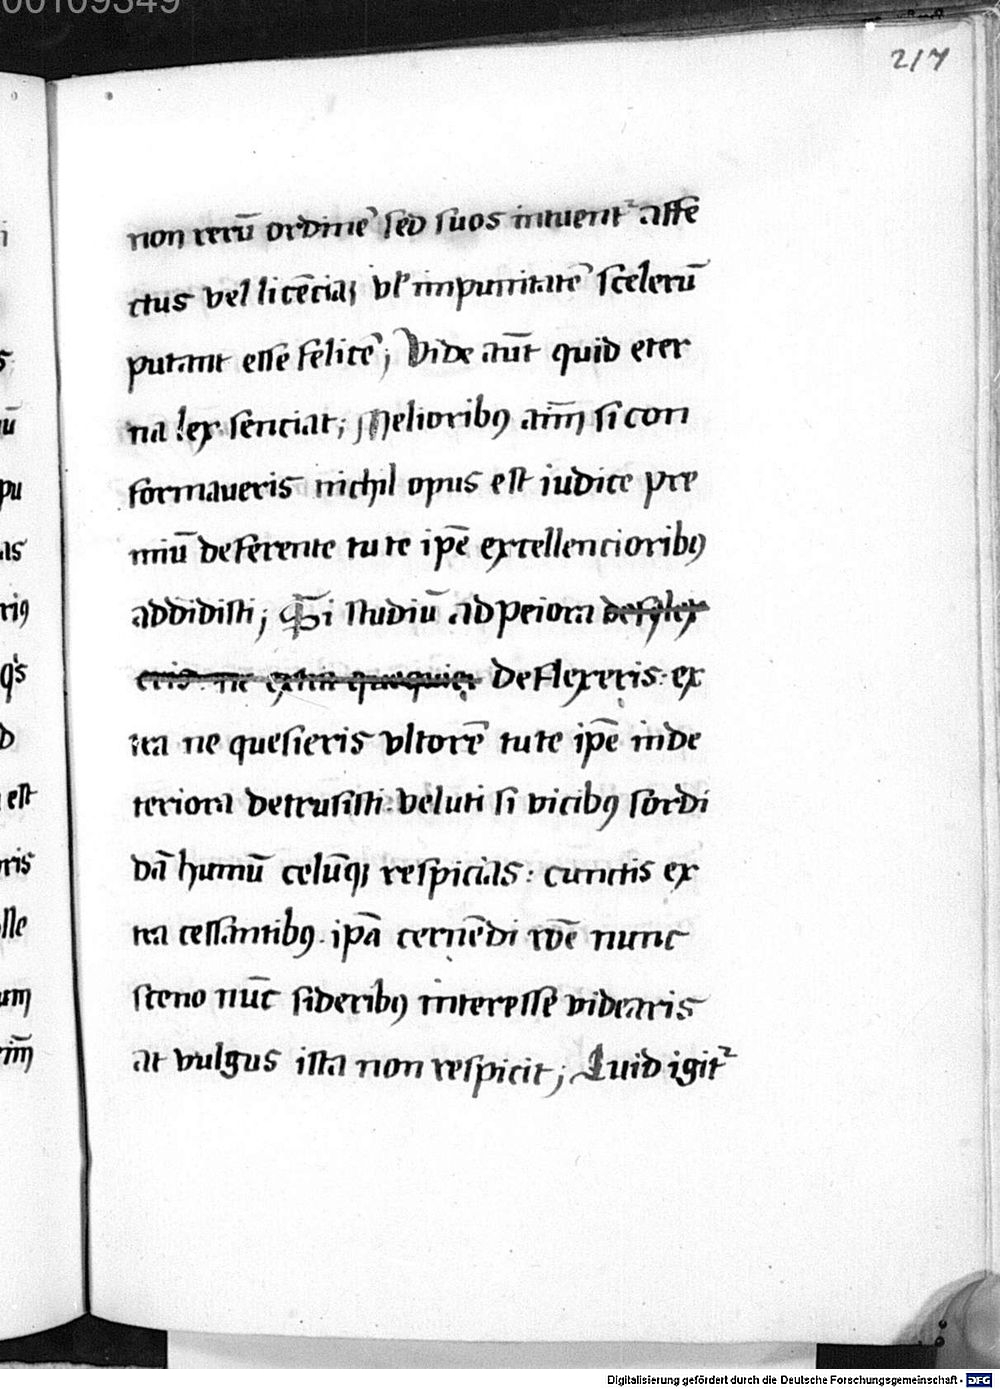 00109349
217
non rerū ordinē sed suos intuentᷣ affe
ctus vel licēciaꝫ vl' impunitatē scelerū
putant esse felicē; Vide aūt quid eter
na lex senciat; Melioribꝰ aīm si con
formaueris nichil opus est iudice pre
miū deferente tu te ip̄e excellencioribꝰ
addidisti; Si studiū ad peiora
deflexeris: ex
tra ne quesieris vltorē tute ip̄e in de
teriora detrusisti: veluti si vicibꝰ sordi
dā humū celūqꝫ respicias: cunctis ex
tra cessantibꝰ. ip̄a cernēdi rōe nunc
sceno nūc sideribꝰ interesse videaris
at vulgus ista non respicit; Quid igitᷣ
Digitalisierung gefördert durch die Deutsche Forschungsgemeinschaft - DFG